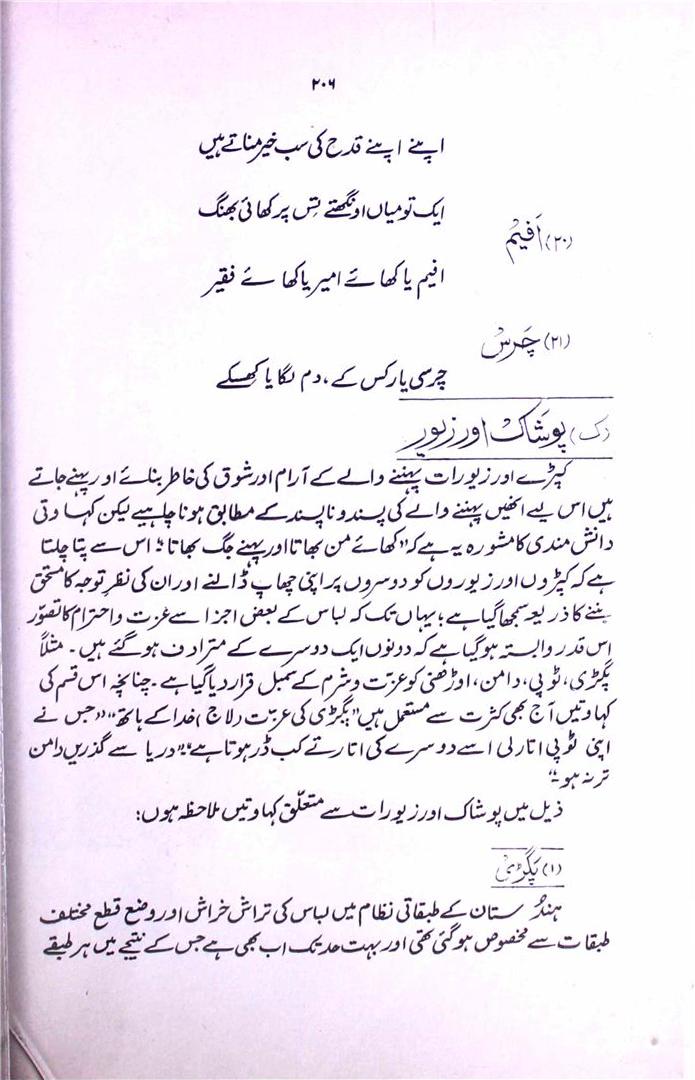 ۲۰۶
اپنے اپنے قدح کی سب خیر مناتے ہیں
ایک تو میاں اونگھتے تِس پر کھائی بھنگ
(۲۰) اَفیُم
افیم یا کھائے امیر یا کھائے فقیر
(۲۱) چَرسْ
چرسی یار کس کے، دم لگایا کھسکے
(ک) پوشاک اور زیور
کپڑے اور زیورات پہننے والے کے آرام اور شوق کی خاطر بنائے اور پہنے جاتے
ہیں اس لیے انھیں پہننے والے کی پسند و ناپسند کے مطابق ہونا چاہیے لیکن کہاوتی
دانش مندی کا مشورہ یہ ہے کہ "کھائے من بھاتا اور پہنے جگ بھاتا"؛ اس سے پتا چلتا
ہے کہ کپڑوں اور زیوروں کو دوسروں پر اپنی چھاپ ڈالنے اور ان کی نظرِ توجہ کا مستحق
بننے کا ذریعہ سمجھا گیا ہے؛ یہاں تک کہ لباس کے بعض اجزا سے عزت و احترام کا تصوّر
اس قدر وابستہ ہو گیا ہے کہ دونوں ایک دوسرے کے مترادف ہو گئے ہیں۔ مثلاً
پگڑی، ٹوپی، دامن، اوڑھنی کو عزّت و شرم کے سمبل قرار دیا گیا ہے۔ چنانچہ اس قسم کی
کہاوتیں آج بھی کثرت سے مستعمل ہیں "پگڑی کی عزّت (لاج) خدا کے ہاتھ"، "جس نے
اپنی ٹوپی اتار لی اسے دوسرے کی اتارتے کب ڈر ہوتا ہے"، "دریا سے گذریں دامن
تر نہ ہو۔"
ذیل میں پوشاک اور زیورات سے متعلّق کہاوتیں ملاحظہ ہوں:
(۱) پگڑی
ہندُستان کے طبقاتی نظام میں لباس کی تراش خراش اور وضع قطع مختلف
طبقات سے مخصوص ہو گئی تھی اور بہت حد تک اب بھی ہے جس کے نتیجے میں ہر طبقے